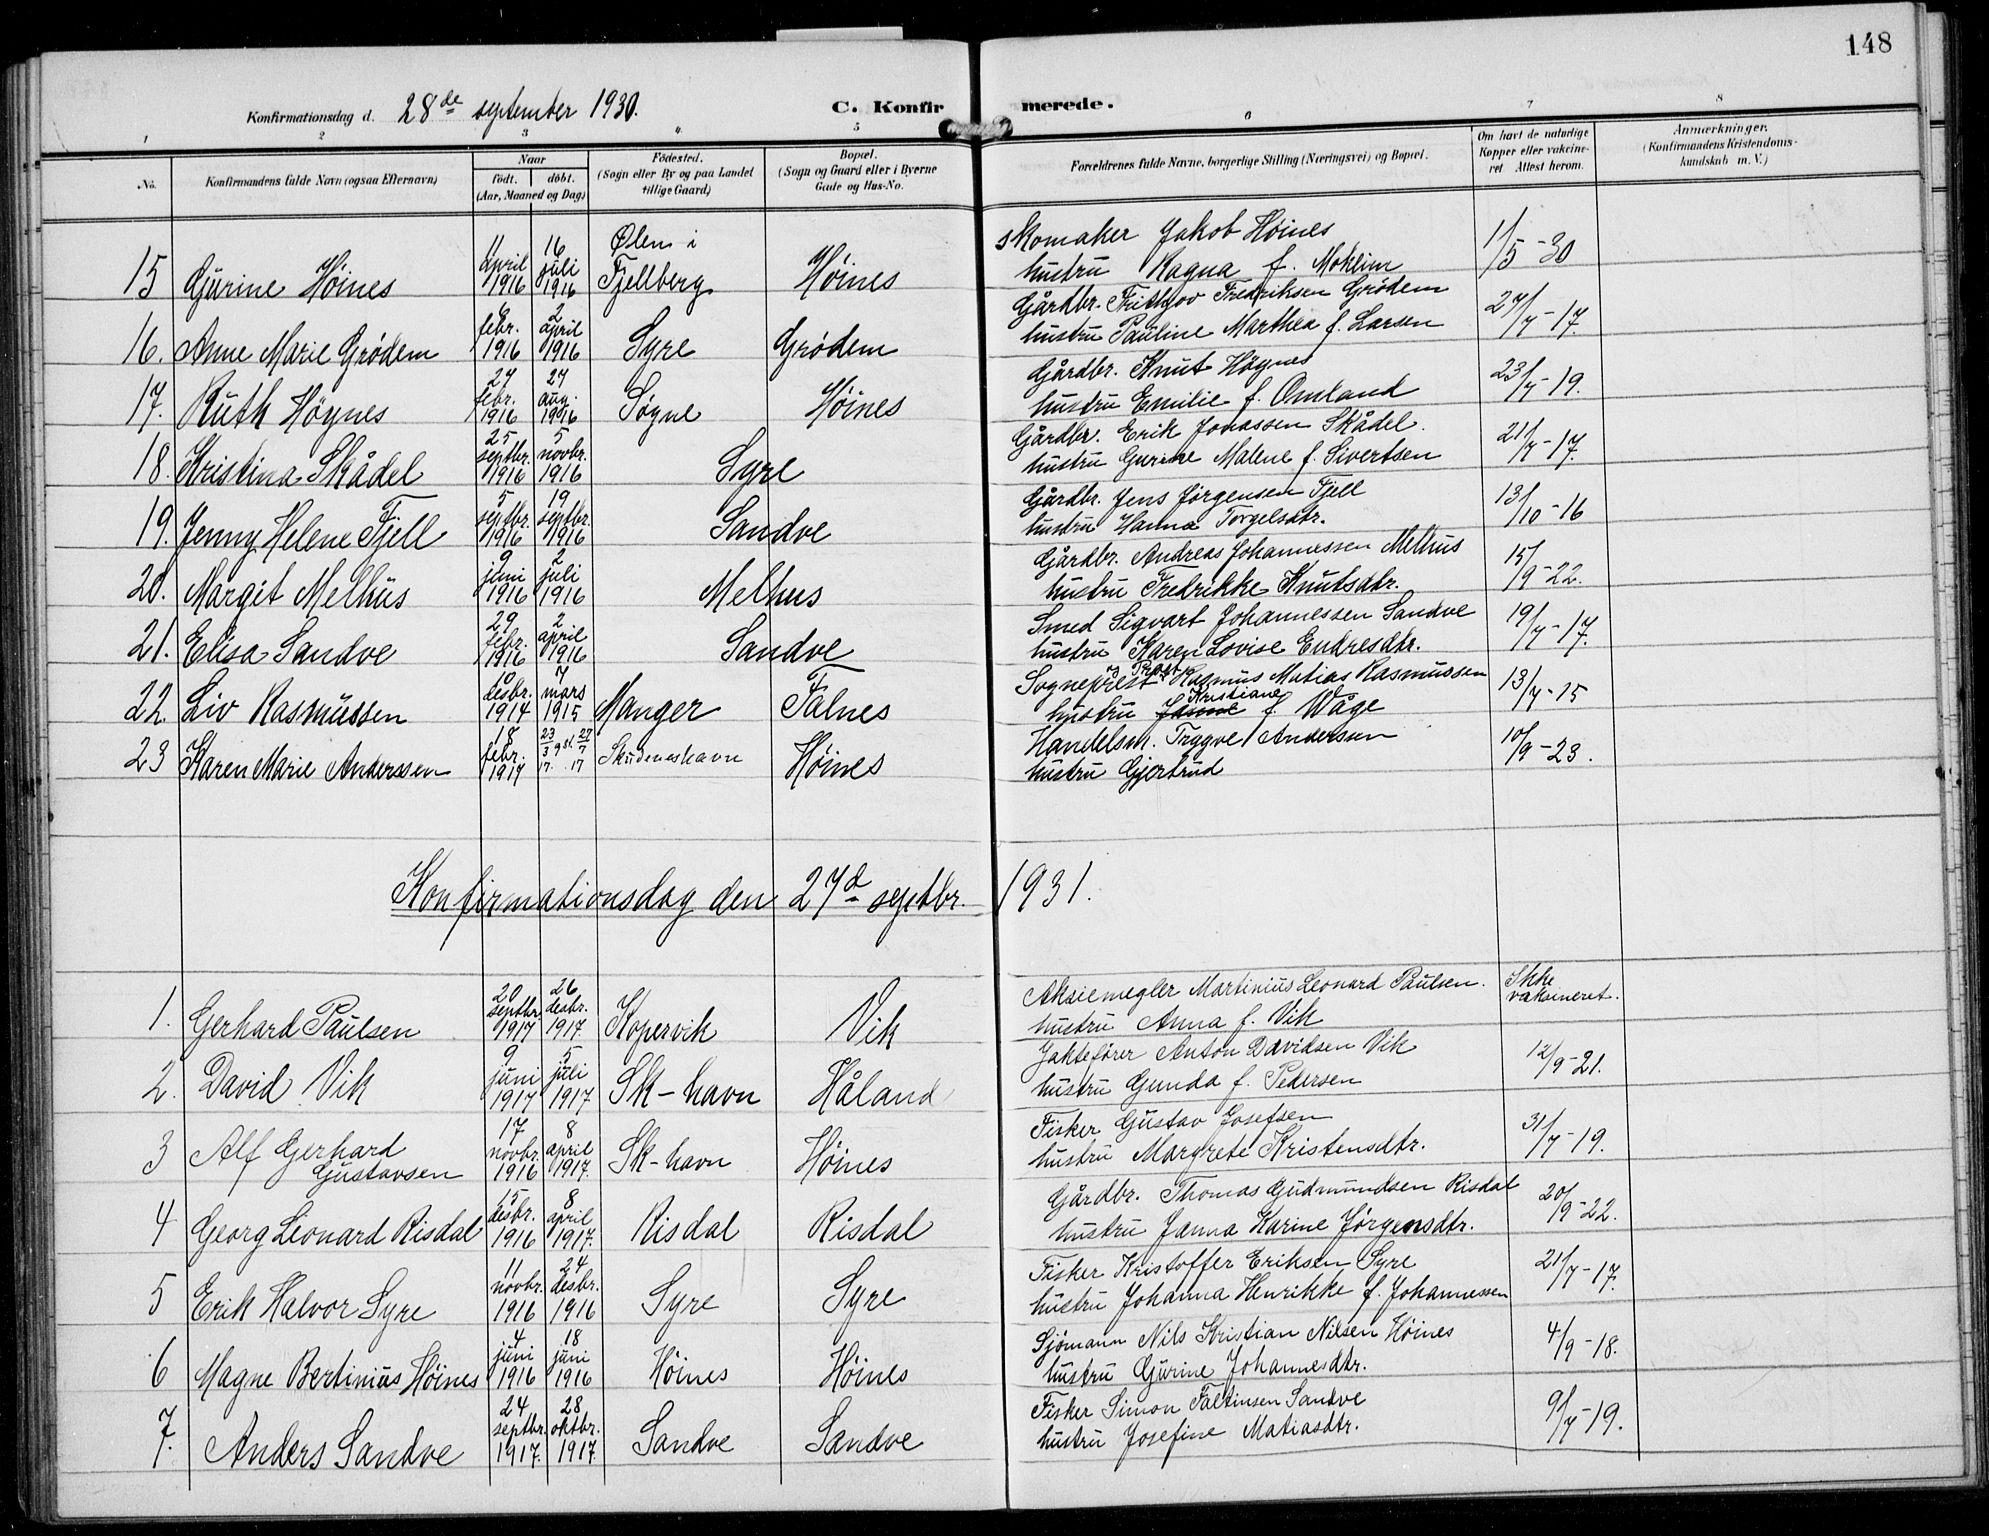 148
Konfirmationsdag d. 28de september 1930.
C. Konfirmerede.
1 2 3 4 5 6 7 8
No.
Konfirmandens fulde Navn (ogsaa Efternavn)
Naar
født. døbt.
(Aar, Maaned og Dag)
Fødested.
(Sogn eller By og paa Landet
tillige Gaard)
Bopæl.
(Sogn og Gaard eller i Byerne
Gade og Hus-No.
Forældrenes fulde Navne, borgerlige Stilling (Næringsvei) og Bopæl.
Om havt de naturlige
Kopper eller vakcine-
ret Attest herom.
Anmærkninger.
(Konfirmandens Kristendoms-
kundskab m. V.)
15 Gurine Höines 11 april 1916 16 juli 1916 Ølen i Fjellberg Höines
skomaker Jakob Höines 11/5-30
hustru Ragna f. Mokleim
16. Anne Marie Grödem 6 febr. 1916 2 april 1916 Syre Grödem
Gårdbr. Frithjov Fredriksen Grödem 27/7-17.
hustru Pauline Marthea f. Larsen
17. Ruth Högnes 27 febr. 1916 27 aug. 1916 Sögne Höines
Gårdbr. Knut Högnes 23/7-19.
hustru Emilie f. Omland
18. Kristina Skådel 25 septbr. 1916 5 novbr. 1916 Syre
Gårdbr. Erik Jonassen Skådel. 21/7-17.
hustru Gurine Malene f. Sivertsen
19. Jenny Helene Fjell 5 septbr. 1916 19 septbr. 1916 Sandve
Gårdbr. Jens Jörgensen Fjell 13/10-16
hustru Hanna Torgelsdtr.
20. Margit Melhus 9 juni 1916 2 juli 1916 Melhus
Gårdbr. Andreas Johannessen Melhus 15/9-22.
hustru Fredrikke Knutsdtr.
21. Elisa Sandve 29 febr. 1916 2 april 1916 Sandve
Smed Sigvart Johannessen Sandve 19/7-17.
hustru Karen Lovise Endresdtr.
22. Liv Rasmussen desbr. 1914 7 mars 1915 Manger Falnes
Sogneprest Prost Rasmus Matias Rasmussen 13/7-15
hustru Kristiane f. Wåge
23 Karen Marie Anderssen 18 febr. 1917 23/3 17. st. 27/7 17 Skudeneshavn Höines
Handelsm. Trygve Anderssen 10/9-23.
hustru Gjertrud
Konfirmationsdag den 27d septbr. 1931.
1. Gerhard Paulsen 20 septbr. 1917 26 desbr. 1917. Kopervik Vik
Aksiemegler Martinius Leonard Paulsen. Ikke vaksineret.
hustru Anna f. Vik
2. David Vik 9 juni 1917 5 juli 1917. Sk-havn Håland
Jaktefører Anton Davidsen Vik 12/9-21.
hustru Gunda f. Pedersen
3 Alf Gerhard Gustavsen 17 novbr. 1916 8 april 1917. Sk-havn Höines
Fisker Gustav Josefsen 31/7-19.
hustru Margrete Kristensdtr.
4 Georg Leonard Risdal 15 desbr. 1916 8 april 1917. Risdal Risdal
Gårdbr. Thomas Gudmundsen Risdal 20/9-22.
hustru Janna Karine Jörgensdtr.
5 Erik Halvor Syre 11 novbr. 1916 24 desbr. 1916 Syre Syre
Fisker Kristoffer Eriksen Syre 21/7-17.
hustru Johanna Henrikke f. Johannessen
6 Magne Bertinius Höines 4 juni 1916 18 juni 1916 Höines Höines
Sjömann Nils Kristian Nilsen Höines 4/9-18.
hustru Gurine Johannesdtr.
7. Anders Sandve 24 septbr. 1917. 28 oktbr. 1917. Sandve Sandve
Fisker Simon Faltinsen Sandve 9/7-19.
hustru Josefine Matiasdtr.